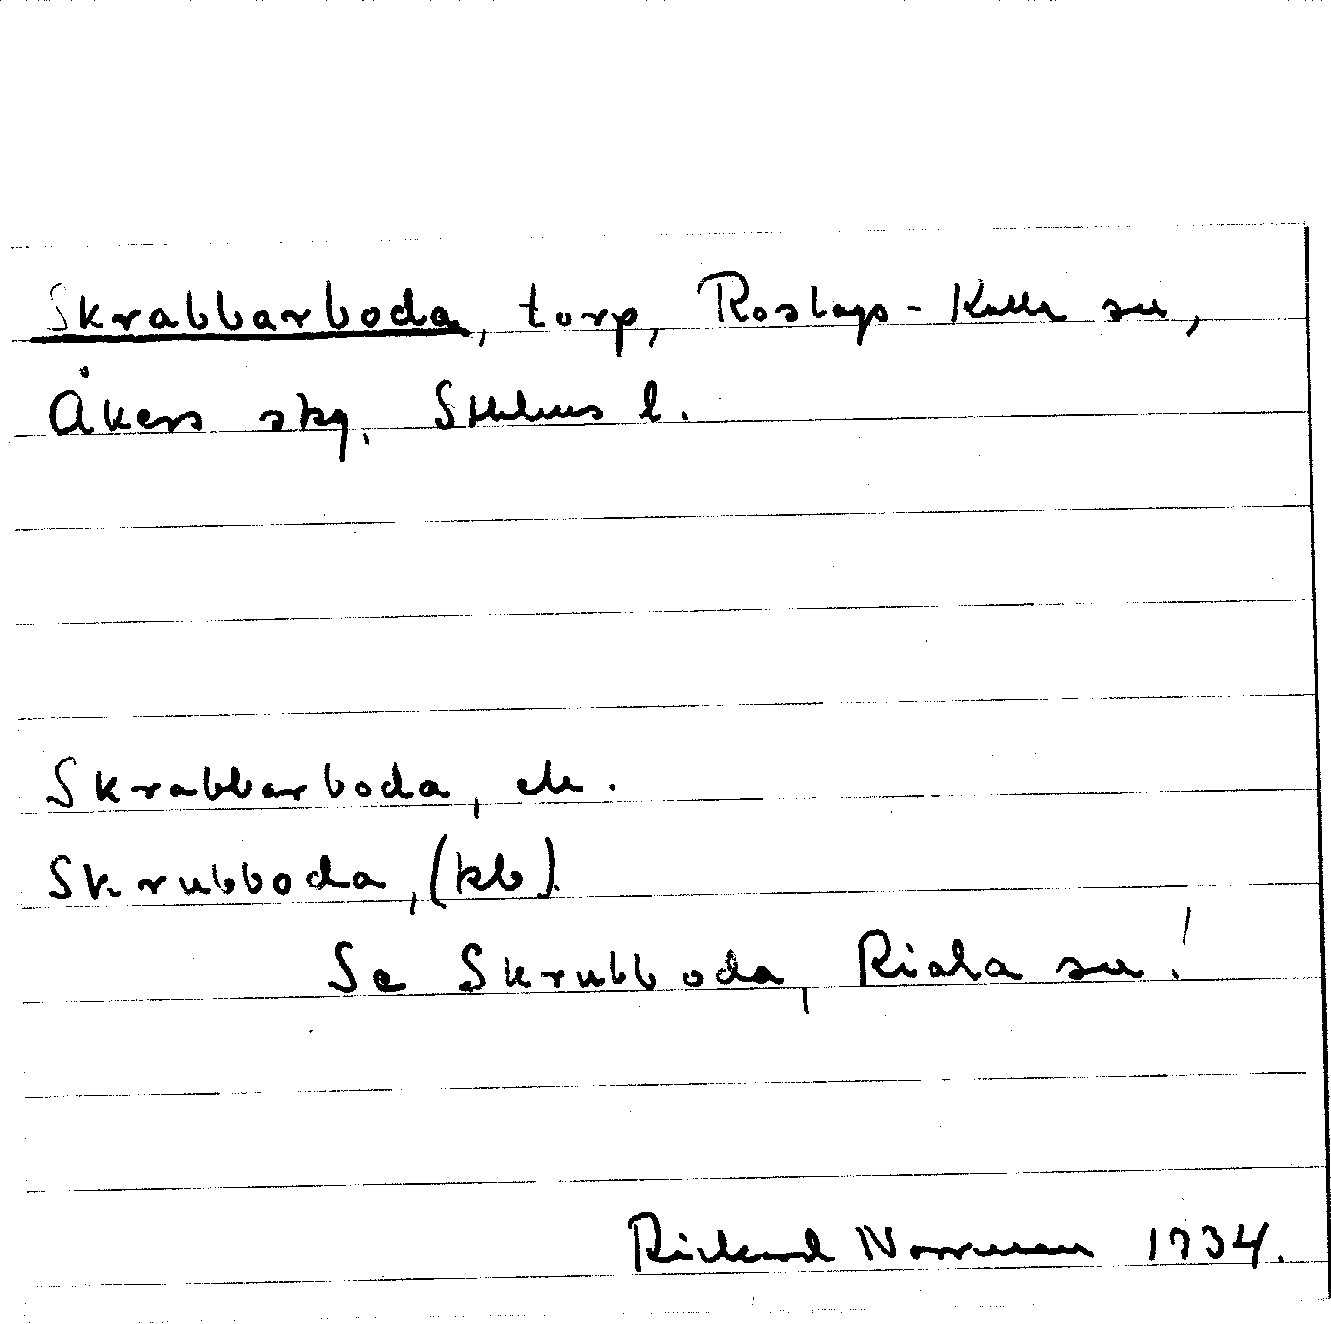 Skrabbarboda, torp, Roslags-Kulla sn,
Åkers skg, Sthlms l.
Skrabbarboda, ek.
Skrubboda, (kb).
Se Skrubboda, Riala sn!
Rickard Norrman 1934.